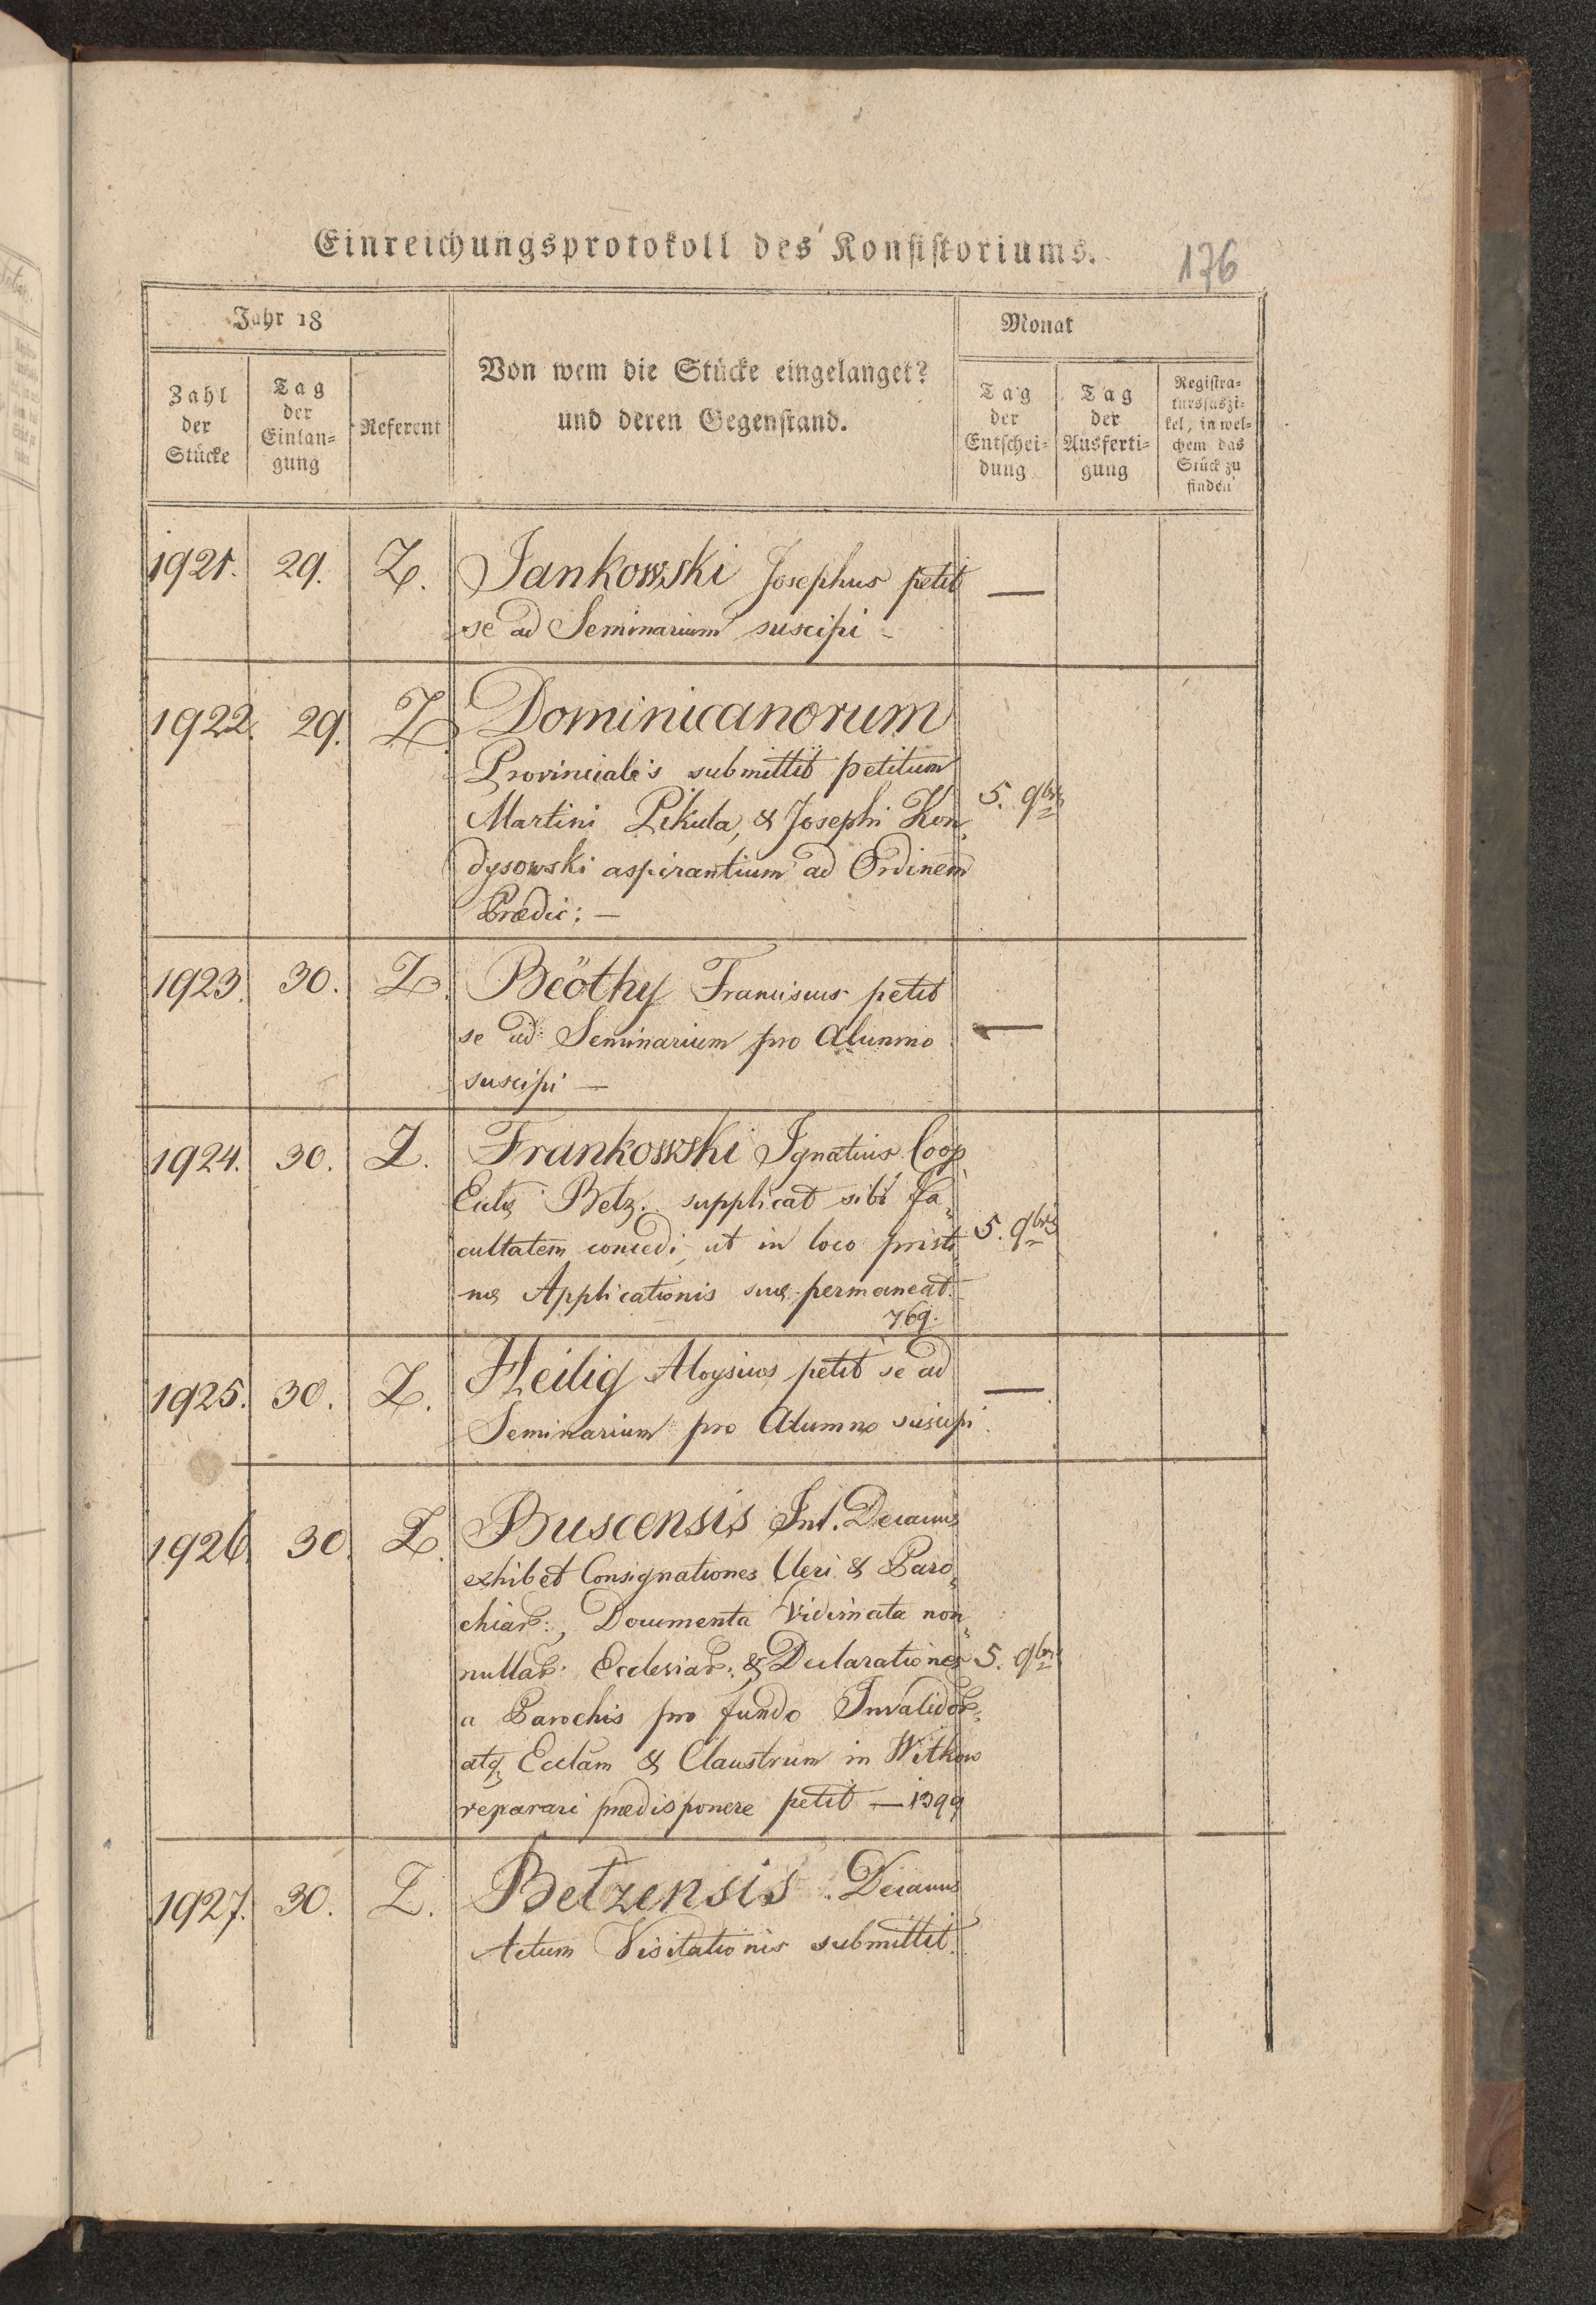 Einreichungsprotokoll des Konsistoriums.
176
Jahr 18
Monat
Von wem die Stücke eingelanget?
und deren Gegenstand.
Zahl
der
Stücke
Tag
der
Einlan=
gung
Referent
Tag
der
Entschei=
dung
Tag
der
Ausferti=
gung
Registra=
tursfaszi=
kel, in wel=
chem das
Stück zu
finden
1921. 29. Z. Jankowski Josephus petit —
se ad Seminarium suscipi -
1922. 29. Z. Dominicanorum
Provincialis submittit petitum
Martini Pikula, & Josephi Kon= 5. 9bris
dysowski aspirantium ad Ordinem
Prædic: —
1923. 30. Z. Beöthy Franciscus petit
se ad Seminarium pro Alumno —
suscipi —
1924. 30. Z. Frankowski Ignatius Coop
Belz. supplicat sibi fa=
cultatem concedi, ut in loco pristi= 5. 9bris
næ Applicationis suæ permaneat.
769.
1925. 30. Z. Heilig Aloysius petit se ad —
Seminarium pro Alumno suscipi.
1926. 30. Z. Buscensis Int. Decanus
exhibet Consignationes Cleri & Paro=
chiar:, Documenta Vidimata non=
nullar: Ecclesiar: & Declarationes 5. 9bris
a Parochis pro fundo Invalidor:
atq Ecclam & Claustrum in Witkow
reparari prædisponere petit — 1399
1927. 30. Z. Betzensis Decanus
Actum Visitationis submittit.